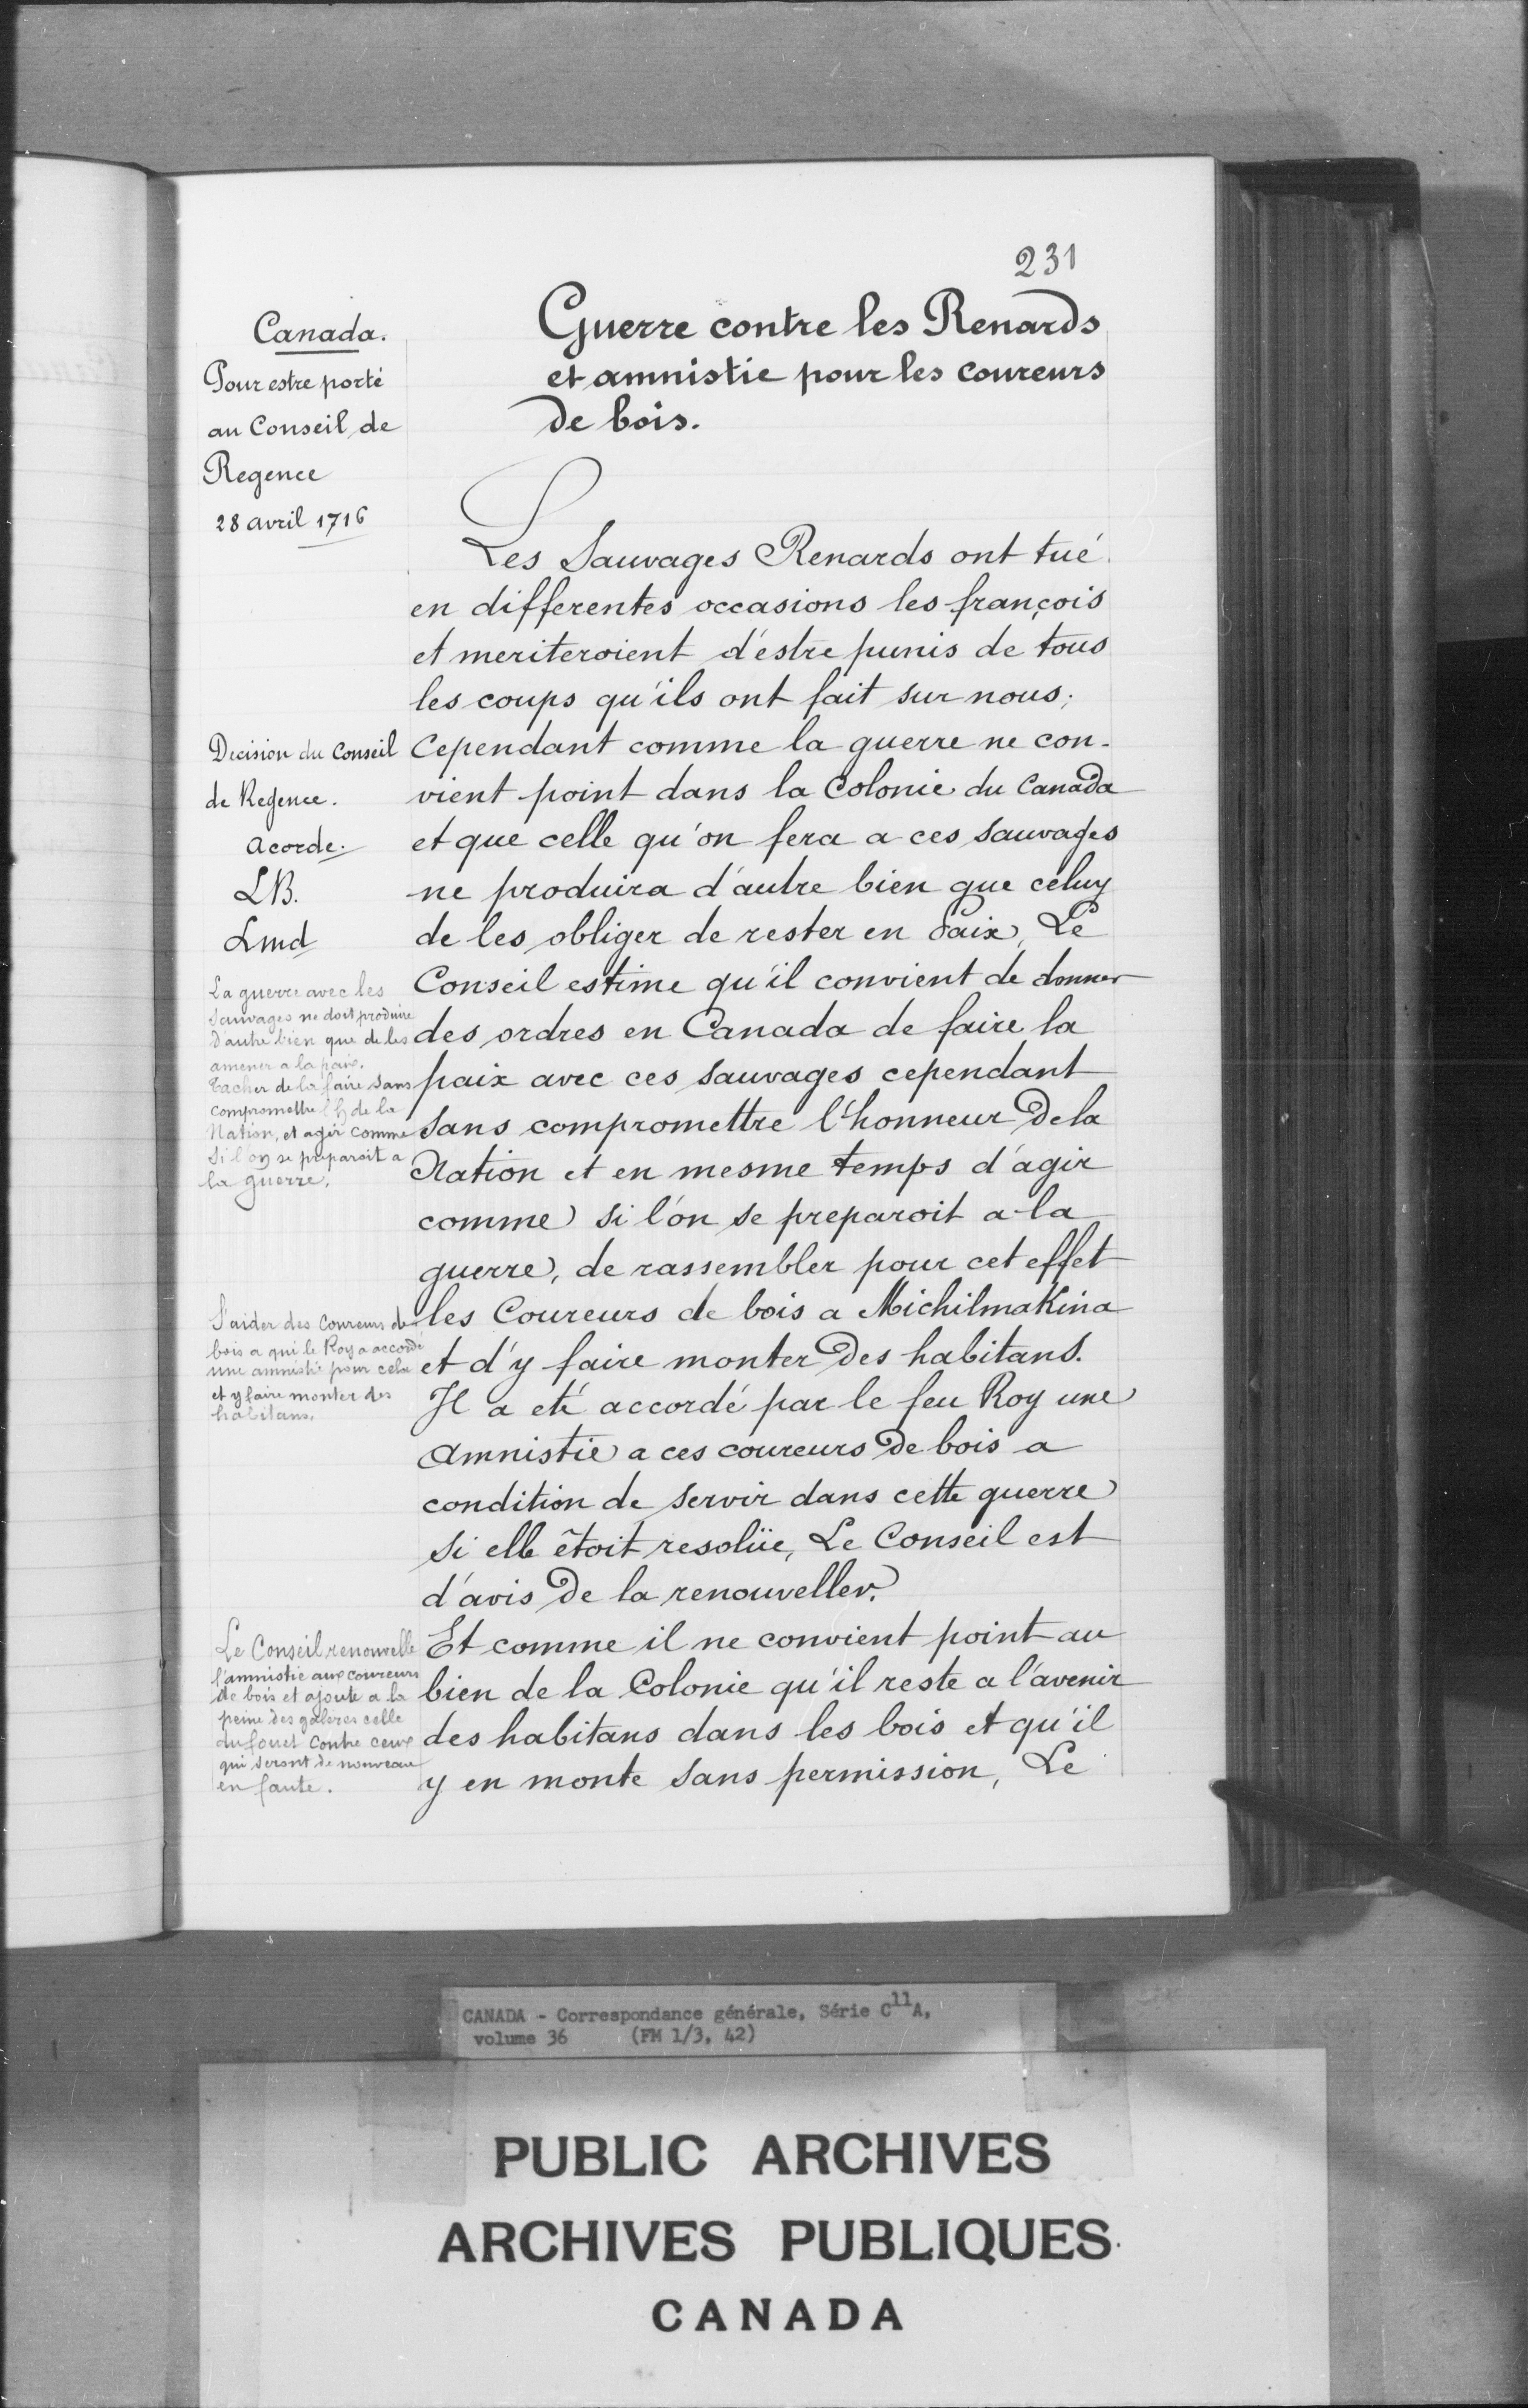 231
Canada.
Pour estre porté
au Conseil de
Regence
28 avril 1716
Guerre contre les Renards
et amnistie pour les coureurs
de bois.
Les Sauvages Renards ont tué
en differentes occasions les françois
et meriteroient d'éstre punis de tous
les coups qu'ils ont fait sur nous;
Cependant comme la guerre ne con-
vient point dans la Colonie du Canada
et que celle qu'on fera a ces sauvages
ne produira d'autre bien que celuy
de les obliger de rester en Paix, Le
Conseil estime qu'il convient de donner
des ordres en Canada de faire la
paix avec ces sauvages cependant
sans compromettre l'honneur De la
Nation et en mesme temps d'agir
comme si l'on se preparoit a la
guerre, de rassembler pour cet effet
les Coureurs de bois a Michilmakina
et d'y faire monter Des habitans.
Il a eté accordé par le feu Roy une
Amnistie a ces coureurs De bois a
condition de servir dans cette guerre
si elle êtoit resolüe, Le Conseil est
d'avis De la renouveller.
Et comme il ne convient point au
bien de la Colonie qu'il reste a l'avenir
des habitans dans les bois et qu'il
y en monte sans permission, Le
Decision du Conseil
de Regence.
acorde.
LB.
Lmd
La guerre avec les
Sauvages ne doit produire
D'autre bien que de les
amener a la paix.
Tacher de la faire sans
compromettre l'h de la
Nation, et agir comme
Si l'on se preparoit a
la guerre.
S'aider des Coureurs de
bois a qui le Roy a accordé
une amnistie pour cela
et y faire monter des
habitans.
Le Conseil renouvelle
l'amnistie aux coureurs
de bois et ajoute a la
peine des galeres celle
du fouet contre ceux
qui seront de nouveau
en faute.
CANADA - Correspondance générale, Série C11A,
volume 36 (FM 1/3, 42)
PUBLIC ARCHIVES
ARCHIVES PUBLIQUES
CANADA